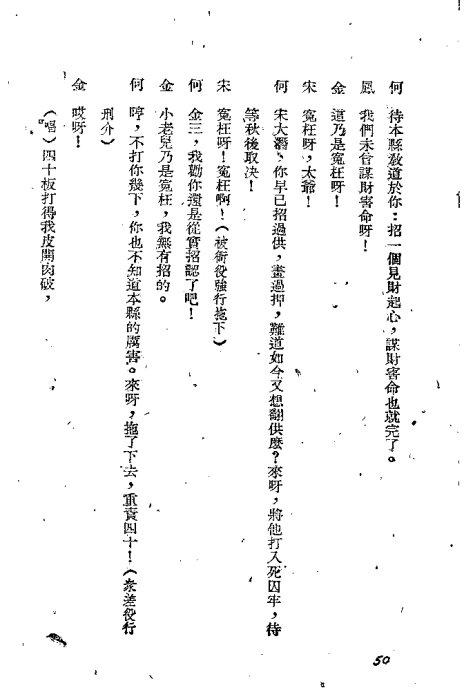 何　待本縣敎道於你：招一個見財起心，謀財害命也就完了。
鳳　我們未曾謀財害命呀！
金　道乃是寃枉呀！
宋　寃枉呀，太爺！
何　宋大潛，你早已招過供，畫過押，難道如今又想翻供麽？來呀，將他打入死囚牢，待
等秋後取决！
宋　寃枉呀！寃枉啊！（被衙役強行拖下）
何　金三，我勸你還是從實招認了吧！
金　小老兒乃是寃枉，我無有招的。
何　哼，不打你幾下，你也不知道本縣的厲害。來呀，拖了下去，重責四十！（衆差役行
刑介）
金　哎呀！
（唱）四十板打得我皮開肉破，
50